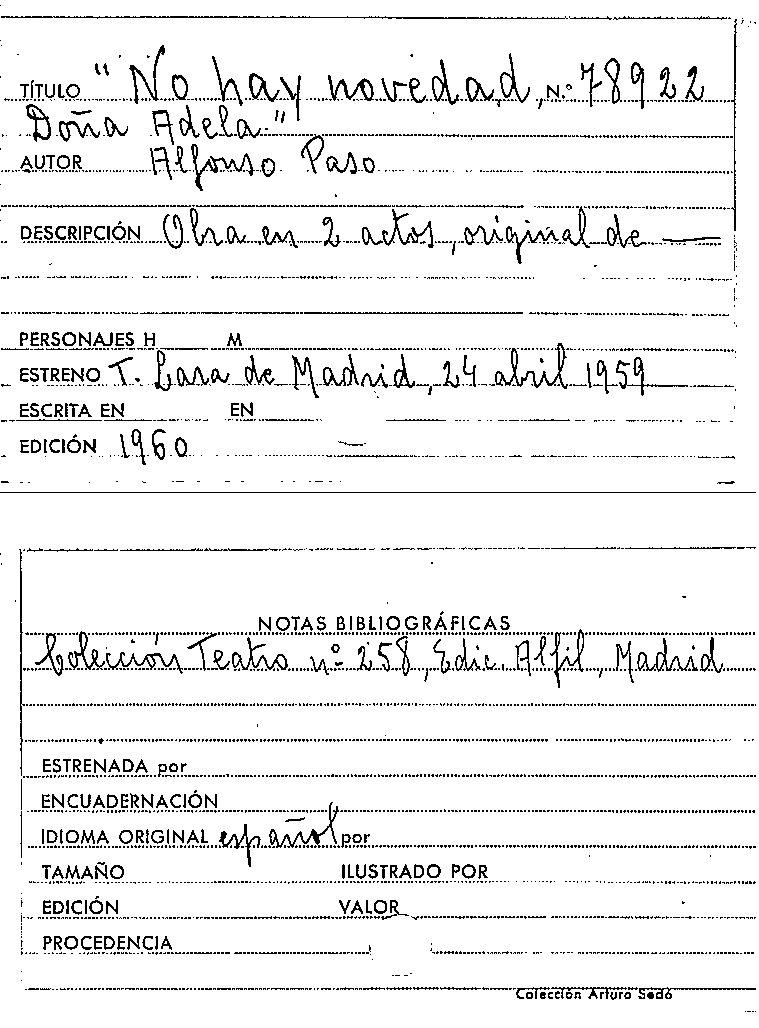 TÍTULO "No hay novedad, N.º 78922
Doña Adela."
AUTOR Alfonso Paso
DESCRIPCIÓN Obra en 2 actos, original de —
PERSONAJES H M
ESTRENO T. Lara de Madrid, 24 abril 1959
ESCRITA EN EN
EDICIÓN 1960 —
NOTAS BIBLIOGRÁFICAS
Colección Teatro nº 258, Edic. Alfil, Madrid
ESTRENADA por
ENCUADERNACIÓN
IDIOMA ORIGINAL español por
TAMAÑO ILUSTRADO POR
EDICIÓN VALOR
PROCEDENCIA
Colección Arturo Sedó